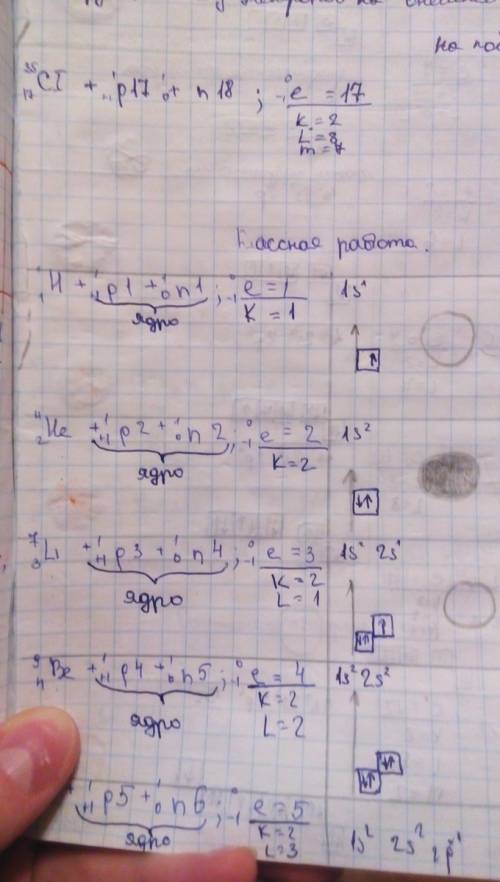 на
на под
³⁵₁₇Cl + ¹₊₁p17 + ¹₀n18 ; ⁰₋₁e = 17
K = 2
L = 8
m = 7
Классная работа.
¹₁H + ¹₊₁p1 + ¹₀n1 ; ⁰₋₁e = 1 1s¹
ядро K = 1
↑
⁴₂He + ¹₊₁p2 + ¹₀n2 ; ⁰₋₁e = 2 1s²
ядро K = 2
↓↑
⁷₃Li + ¹₊₁p3 + ¹₀n4 ; ⁰₋₁e = 3 1s¹ 2s¹
ядро K = 2
L = 1
↑
↓↑
⁹₄Be + ¹₊₁p4 + ¹₀n5 ; ⁰₋₁e = 4 1s² 2s²
ядро K = 2
L = 2
↓↑
↓↑
+ ¹₊₁p5 + ¹₀n6 ; ⁰₋₁e = 5
ядро K = 2
L = 3 1s² 2s² 2p¹